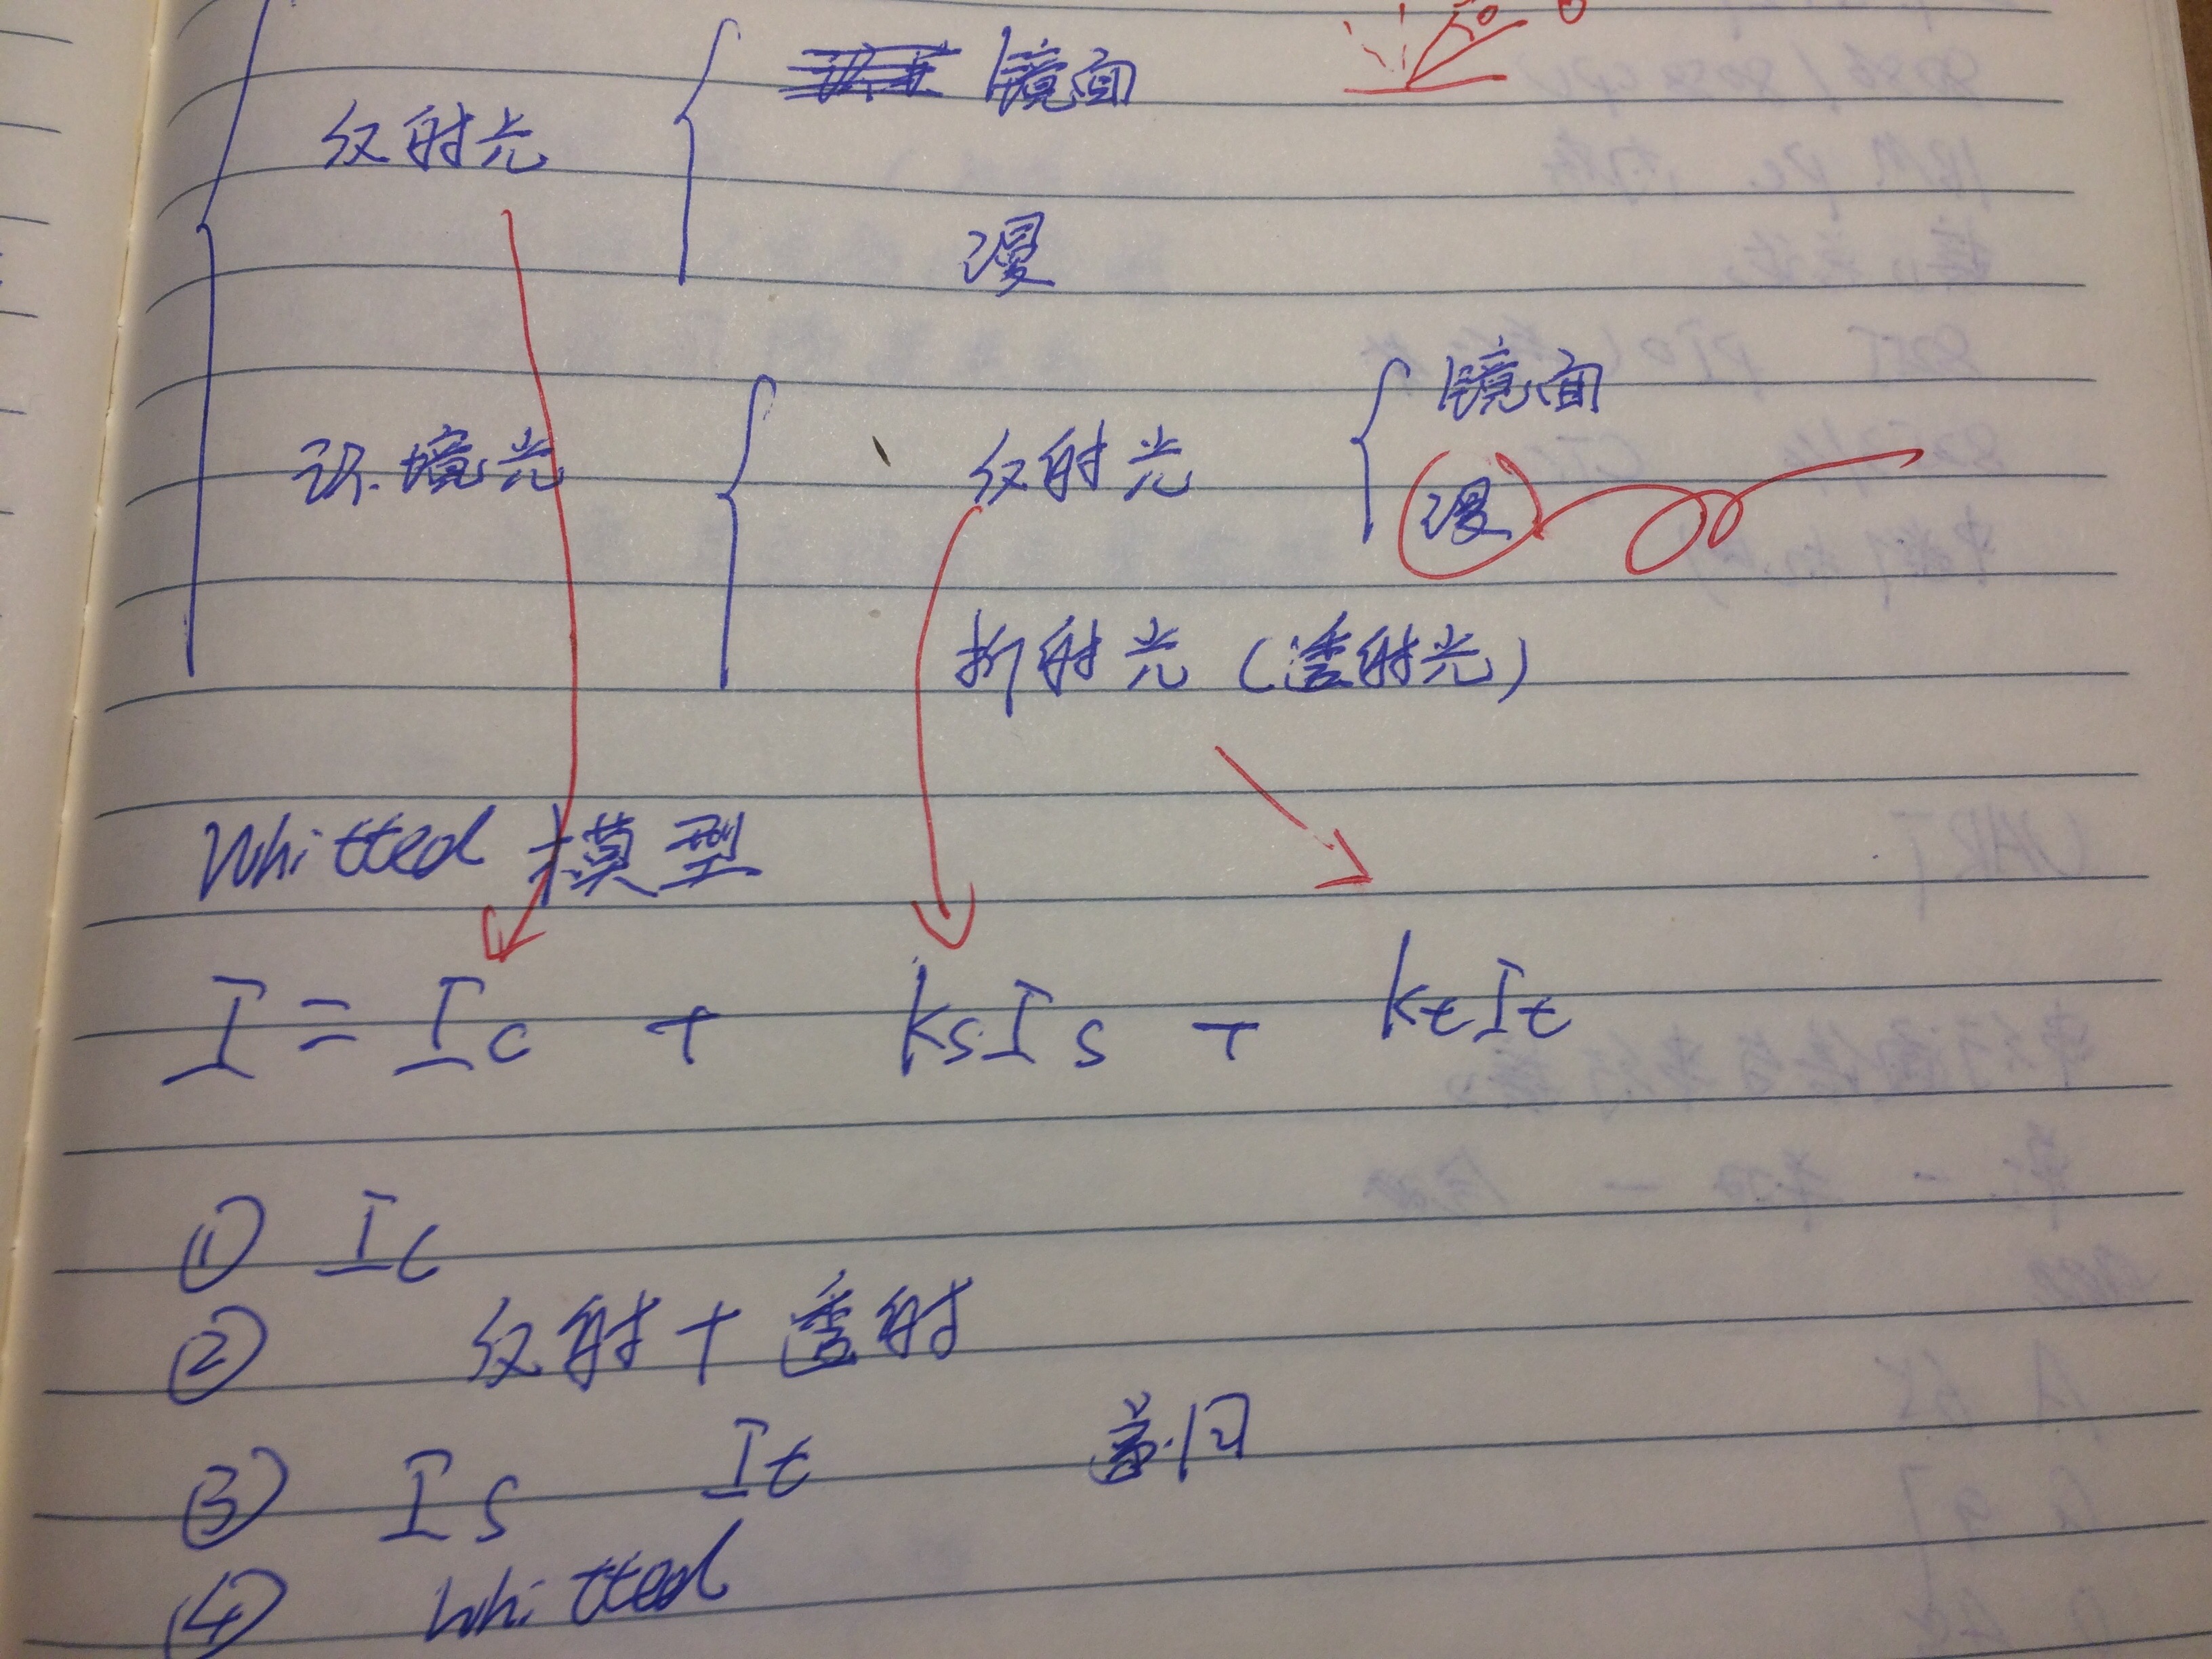 反射光 镜面
漫
环境光 反射光 镜面
漫
折射光(透射光)
Whitted 模型
I = Ic + ksIs + ktIt
① Ic
② 反射+透射
③ Is It 递归
④ Whitted